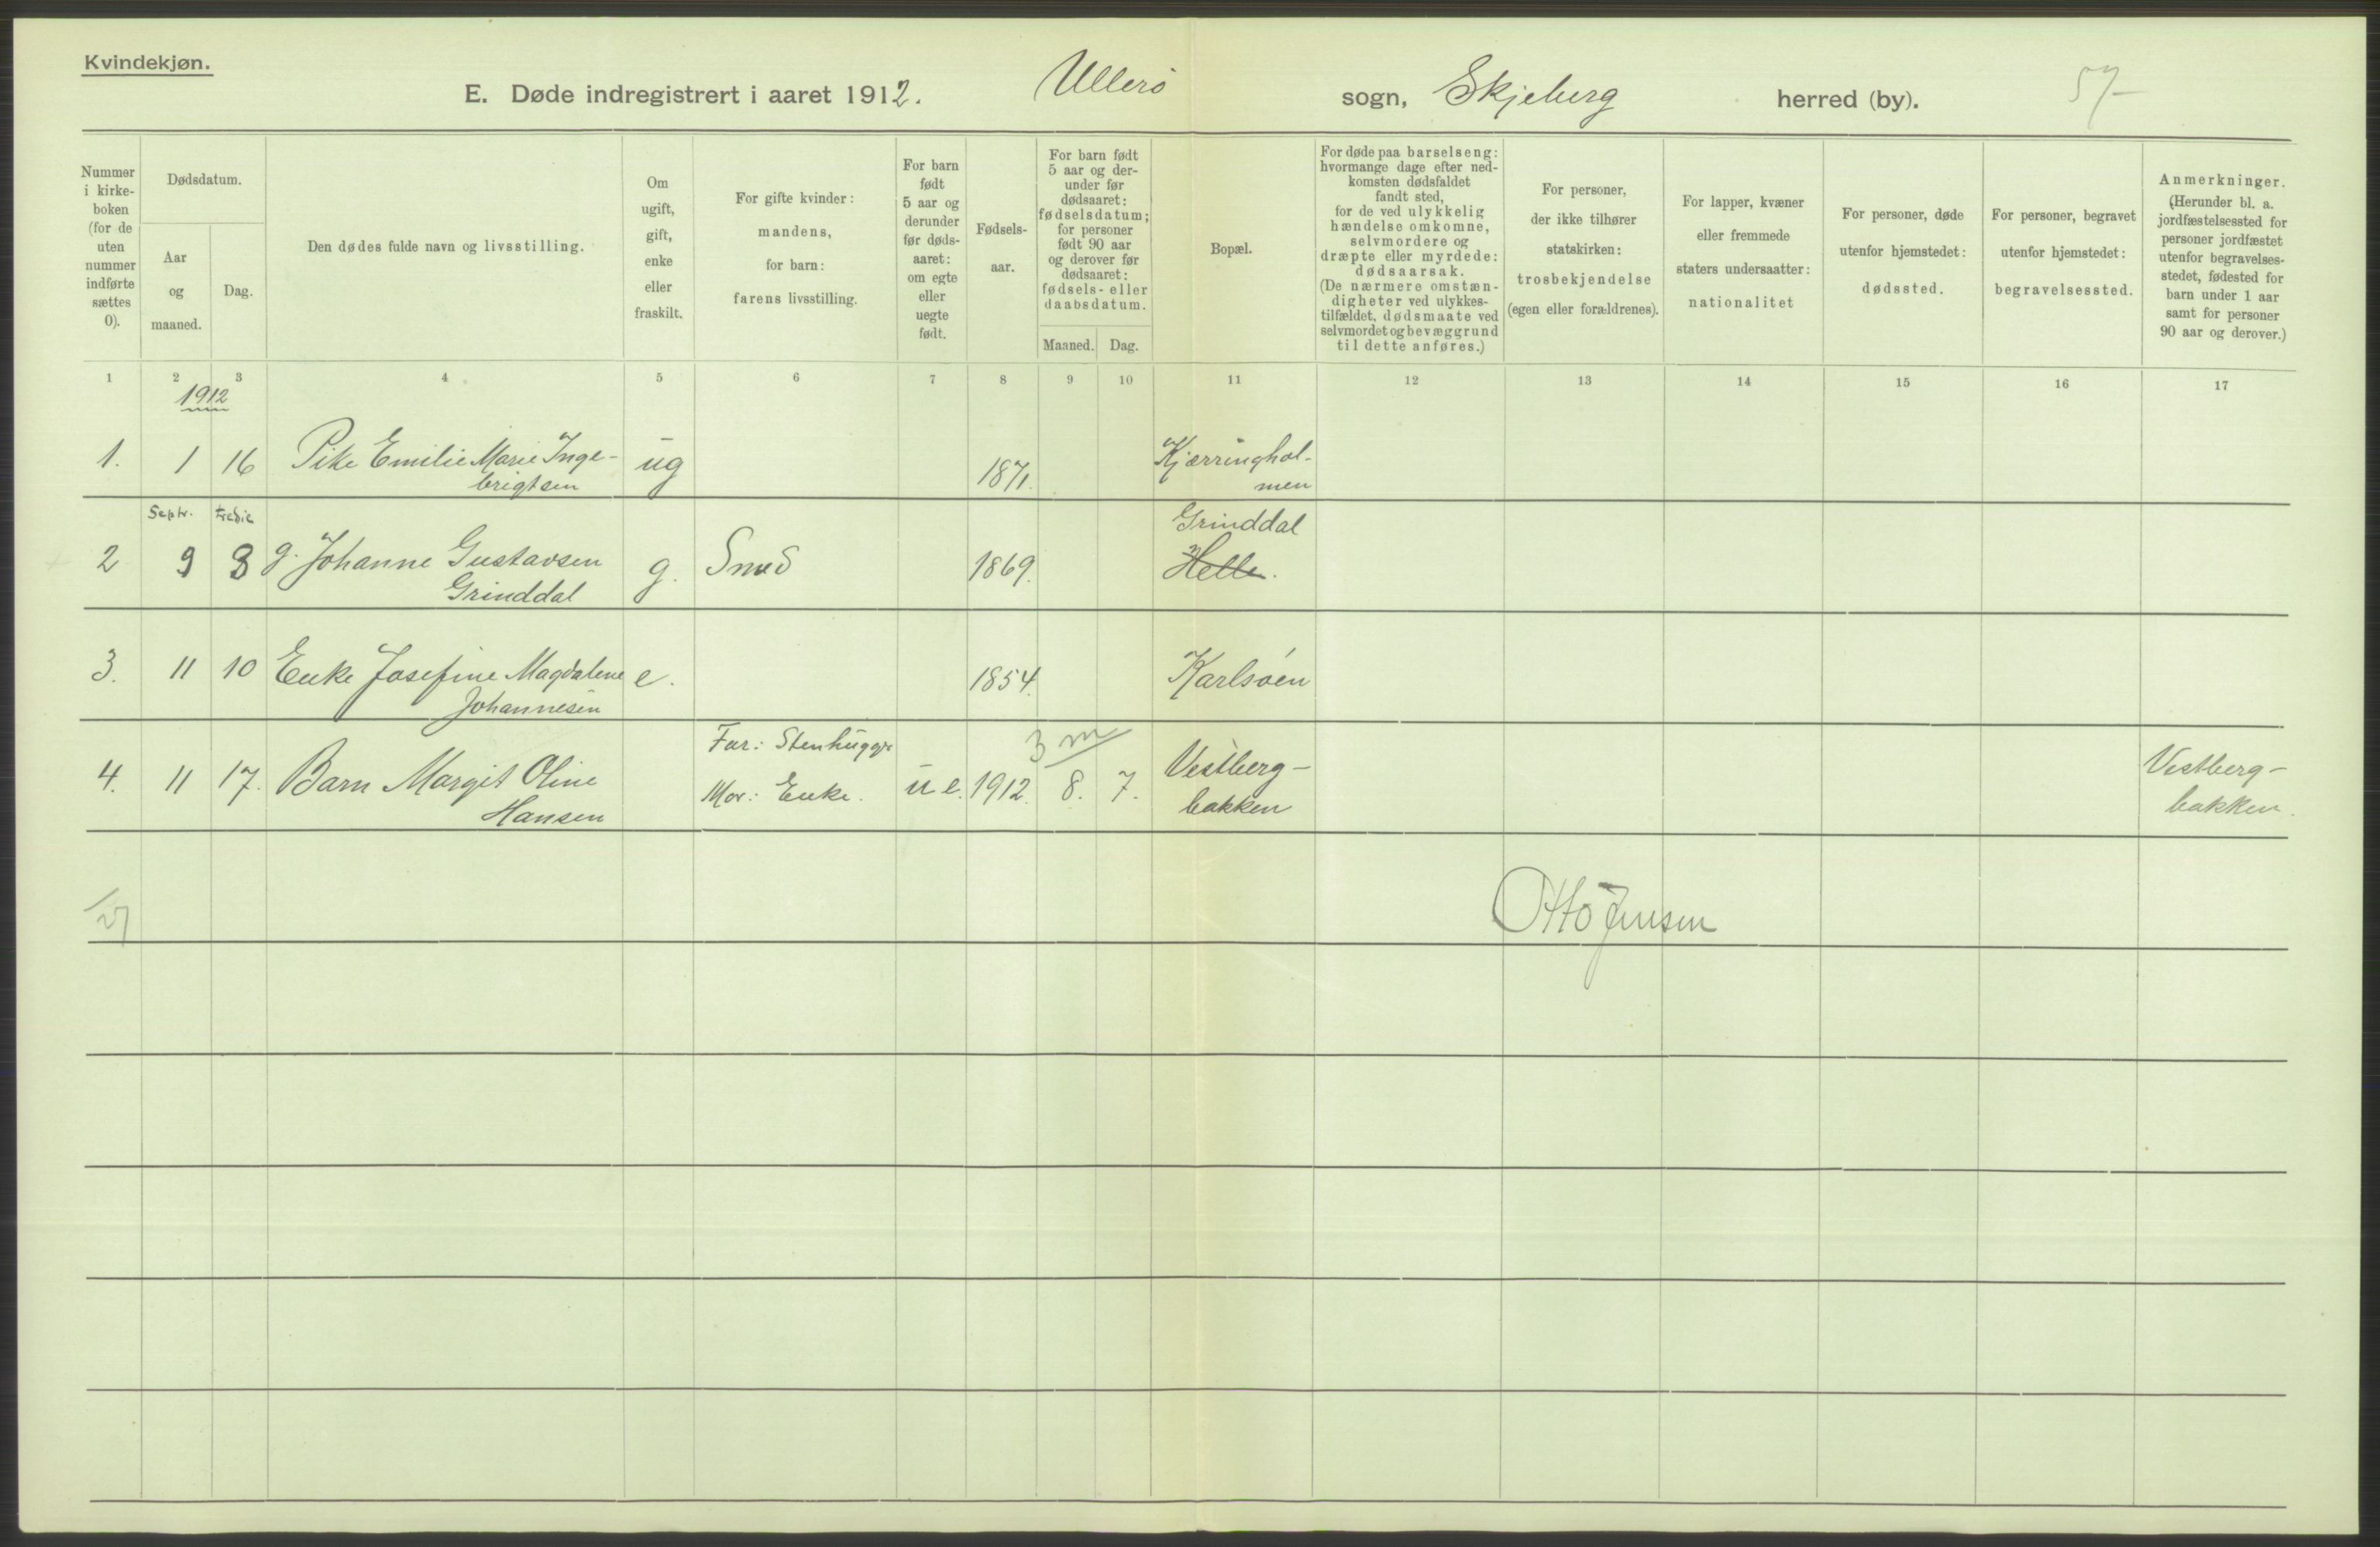 Kvindekjøn.
E. Døde indregistrert i aaret 1912. Ullerö sogn, Skjeberg herred (by). 57
Nummer
i kirke-
boken
(for de
uten
nummer
indførte
sættes
0).
Dødsdatum.
Aar
og
maaned.
Dag.
Den dødes fulde navn og livsstilling.
Om
ugift,
gift,
enke
eller
fraskilt.
For gifte kvinder:
mandens,
for barn:
farens livsstilling.
For barn
født
5 aar og
derunder
før døds-
aaret:
om egte
eller
uegte
født.
Fødsels-
aar.
For barn født
5 aar og der-
under før
dødsaaret:
fødselsdatum;
for personer
født 90 aar
og derover før
dødsaaret:
fødsels- eller
daabsdatum.
Maaned. Dag.
Bopæl.
For døde paa barselseng:
hvormange dage efter ned-
komsten dødsfaldet
fandt sted,
for de ved ulykkelig
hændelse omkomne,
selvmordere og
dræpte eller myrdede:
dødsaarsak.
(De nærmere omstæn-
digheter ved ulykkes-
tilfældet, dødsmaate ved
selvmordet og bevæggrund
til dette anføres.)
For personer,
der ikke tilhører
statskirken:
trosbekjendelse
(egen eller forældrenes).
For lapper, kvæner
eller fremmede
staters undersaatter:
nationalitet
For personer, døde
utenfor hjemstedet:
dødssted.
For personer, begravet
utenfor hjemstedet:
begravelsessted.
Anmerkninger.
(Herunder bl. a.
jordfæstelsessted for
personer jordfæstet
utenfor begravelses-
stedet, fødested for
barn under 1 aar
samt for personer
90 aar og derover.)
1 2 3 4 5 6 7 8 9 10 11 12 13 14 15 16 17
1912
1. 1 16 Pike Emilie Marie Inge- ug 1871. Kjærringhol-
brigtsen men
Septr. tredie Grinddal
2 9 3 g. Johanne Gustavsen g. Smed 1869. Helle.
Grinddal
3. 11 10 Enke Josefine Magdalene e. 1854. Karlsöen
Johannesen
Far: Stenhugger 3 m
4. 11 17. Barn Margit Oline Mor: Enke. u e. 1912. 8. 7. Vestberg- Vestberg-
Hansen bakken bakken.
27
Otto Jensen